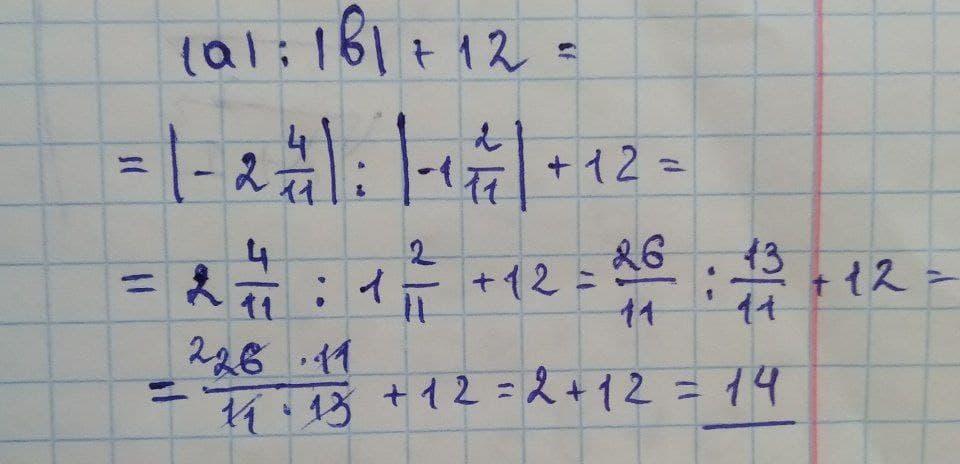 |a| : |b| + 12 =
= |- 2 4/11| : |-1 2/11| + 12 =
= 2 4/11 : 1 2/11 + 12 = 26/11 : 13/11 + 12 =
= 2 26 · 11 / 11 · 13 + 12 = 2 + 12 = 14